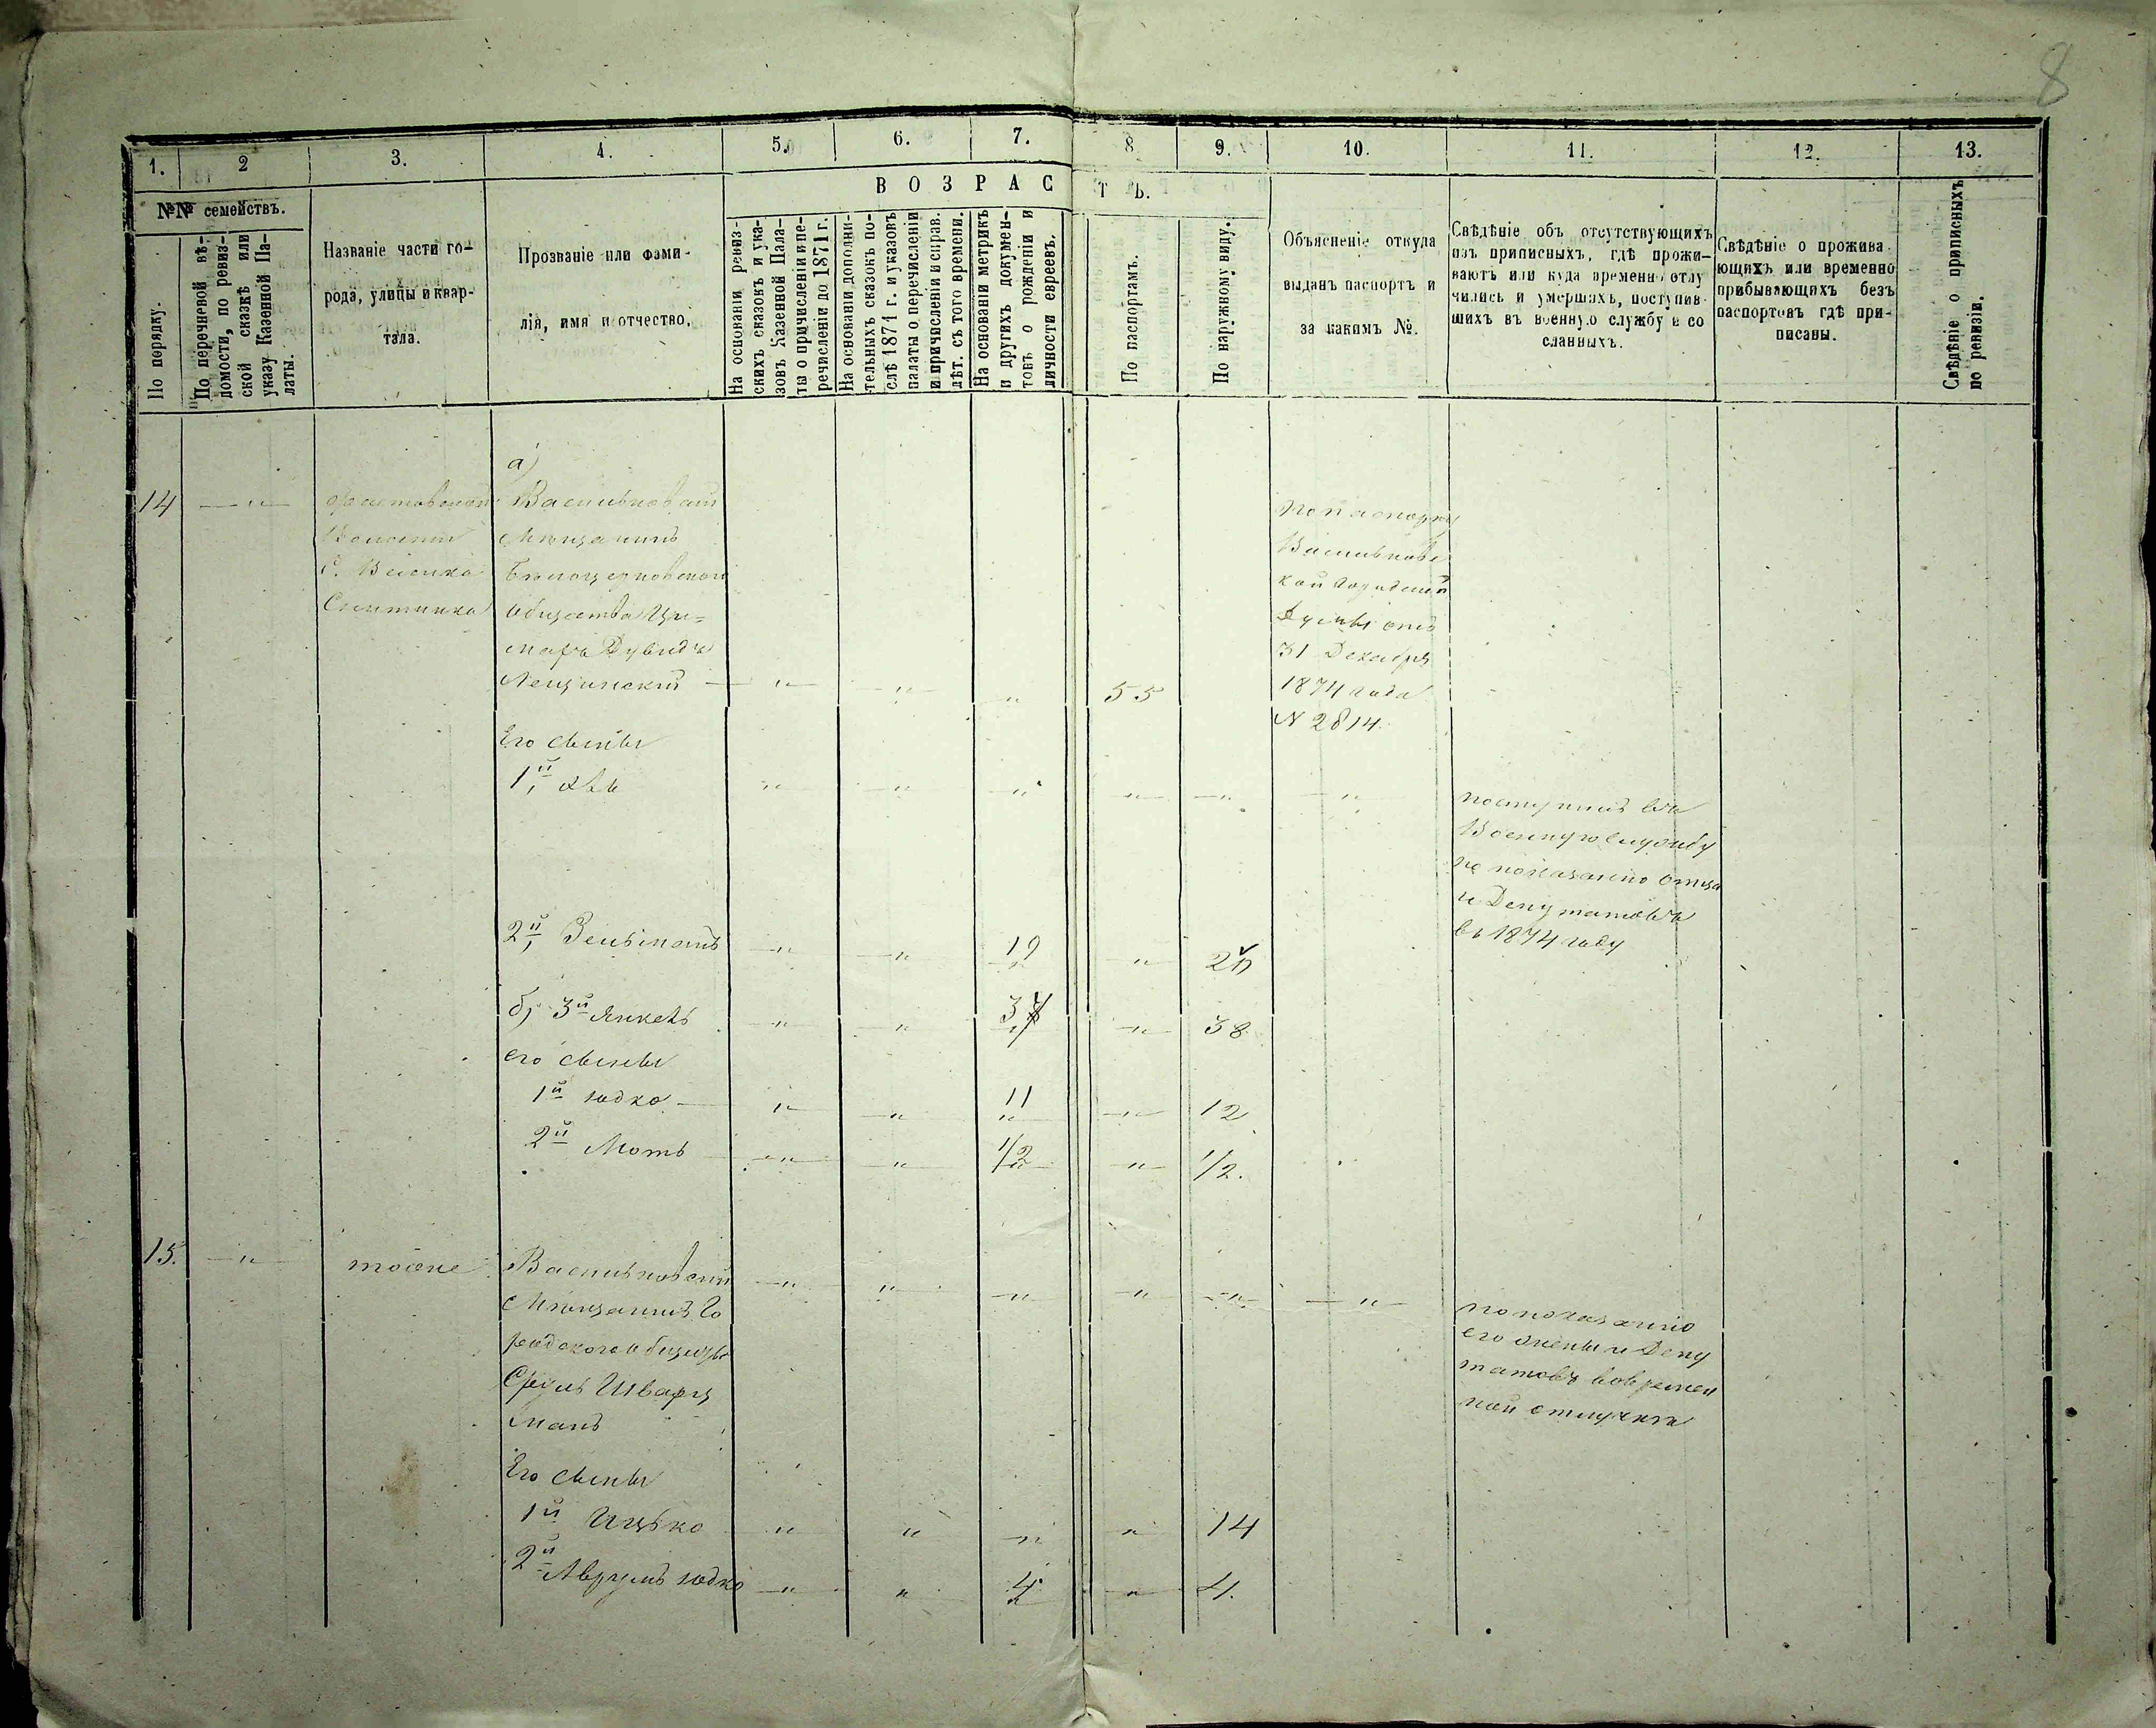 8
1. 2 3. 4. 5. 6. 7. 8 9. 10. 11. 12. 13.
ВОЗРАСТЪ.
№№ семействъ.
По порядку.
По перечневой вѣ-
домости, по ревиз-
ской сказкѣ или
указу Казенной Па-
латы.
Названіе части го-
рода, улицы и квар-
тала.
Прозваніе или фами-
лія, имя и отчество.
На основаніи ревиз-
скихъ сказокъ и ука-
зовъ Казенной Пала-
ты о причисленіи и пе-
речисленіи до 1871 г.
На основаніи дополни-
тельныхъ сказокъ по-
слѣ 1871 г. и указовъ
палаты о перечисленіи
и причисленіи и справ.
лѣт. съ того времени.
На основаніи метрикъ
и другихъ докумен-
товъ о рожденіи и
личности евреевъ.
По паспортамъ.
По наружному виду.
Объясненіе откуда
выданъ паспортъ и
за какимъ №.
Свѣдѣніе объ отсутствующихъ
изъ приписныхъ, гдѣ прожи-
ваютъ или куда временно отлу
чились и умершихъ, поступив-
шихъ въ военную службу и со
сланныхъ.
Свѣдѣніе о прожива-
ющихъ или временно
прибывающихъ безъ
паспортовъ гдѣ при-
писаны.
Свѣдѣніе о приписныхъ
по ревизіи.
14 — " —
Фастовской
Волости
С. Веленка
Снитинка
а)
Васильковскій
Мѣщанинъ
Бѣлоцерковскаго
общества Ци-
маръ Дувидъ
Лещинскій — " — " — " 55
По паспорту
Васильковс
кой городской
Думы отъ
31 Декабря
1874 года
N 2814.
Его сыновья
1й, " " " — " — — " — — " —
поступилъ въ
Военную службу
по показанію отца
и Депутатовъ
въ 1874 году
2й, Зельманъ — " — — " — 19 — " —
б) 3й Янкель — " — — " — 37 — " — 38
его сыновья
1й Юдко — " — " — 11 — " — 12
2й Мотъ — " — — " — 1/2 — " — 1/2.
15. — " — тоже
Васильковскій
Мѣщанинъ Го
родского общества
Сруль Шварц
манъ
— " — " — " — " — " — — " —
по показанію
его жены и Депу
татовъ во времен
ной отлучкѣ
Его сыновья
1й Ицько " " " " 14
2й Аврумъ Юдко — " — " 4 — " — 4.